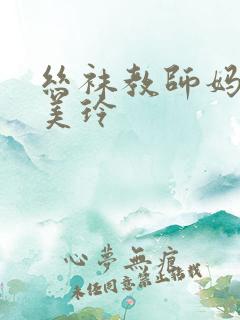 絲袜教師妈
美玲
心夢無痕
未经同意禁止转载